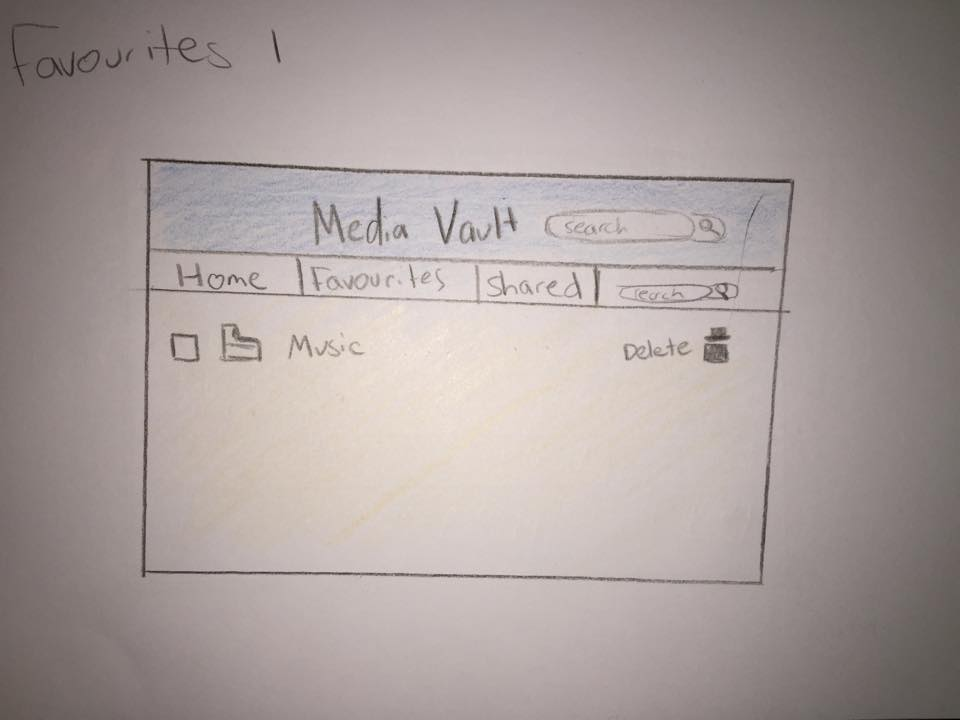 Favourites 1
Media Vault search
Home Favourites Shared search
Music Delete